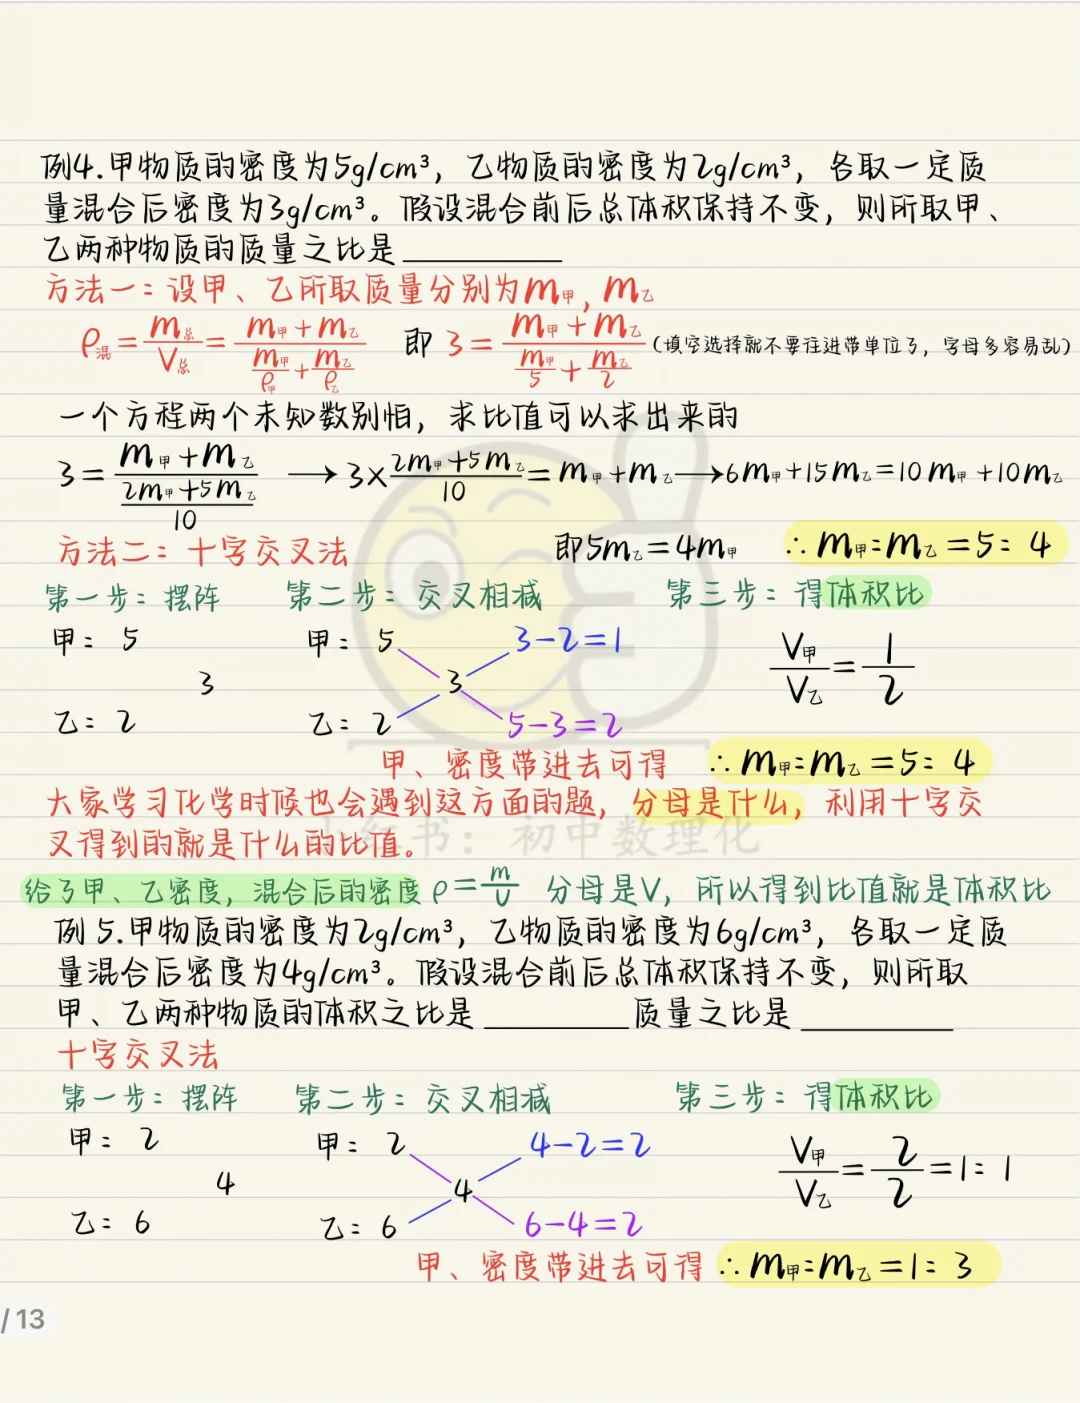 例4.甲物质的密度为5g/cm³，乙物质的密度为2g/cm³，各取一定质
量混合后密度为3g/cm³。假设混合前后总体积保持不变，则所取甲、
乙两种物质的质量之比是________
方法一：设甲、乙所取质量分别为m甲，m乙
ρ混=m总/V总=(m甲+m乙)/(m甲/ρ甲+m乙/ρ乙) 即 3=(m甲+m乙)/(m甲/5+m乙/2)（填空选择就不要往进带单位了，字母多容易乱）
一个方程两个未知数别怕，求比值可以求出来的
3=(m甲+m乙)/((2m甲+5m乙)/10) → 3×(2m甲+5m乙)/10=m甲+m乙→6m甲+15m乙=10m甲+10m乙
方法二：十字交叉法 即5m乙=4m甲 ∴m甲:m乙=5:4
第一步：摆阵 第二步：交叉相减 第三步：得体积比
甲：5 甲：5 3-2=1 V甲/V乙=1/2
3 3
乙：2 乙：2 5-3=2
甲、密度带进去可得 ∴m甲:m乙=5:4
大家学习化学时候也会遇到这方面的题，分母是什么，利用十字交
叉得到的就是什么的比值。
小红书：初中数理化
给了甲、乙密度，混合后的密度ρ=m/v 分母是V，所以得到比值就是体积比
例5.甲物质的密度为2g/cm³，乙物质的密度为6g/cm³，各取一定质
量混合后密度为4g/cm³。假设混合前后总体积保持不变，则所取
甲、乙两种物质的体积之比是________质量之比是________
十字交叉法
第一步：摆阵 第二步：交叉相减 第三步：得体积比
甲：2 甲：2 4-2=2 V甲/V乙=2/2=1:1
4 4
乙：6 乙：6 6-4=2
甲、密度带进去可得 ∴m甲:m乙=1:3
/13